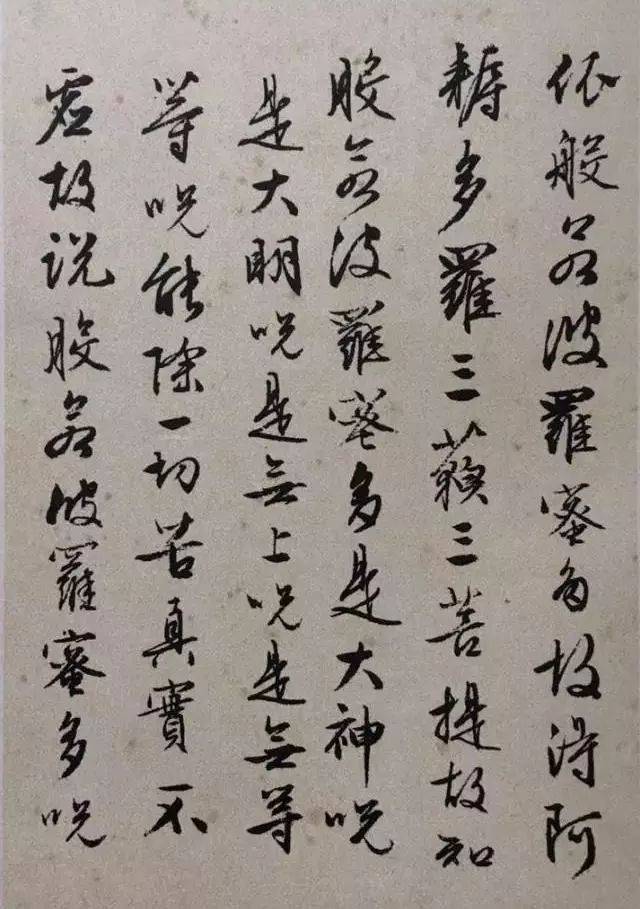 依般若波羅蜜多故得阿
耨多羅三藐三菩提故知
般若波羅蜜多是大神咒
是大明咒是無上咒是無等
等咒能除一切苦真實不
虛故说般若波羅蜜多咒